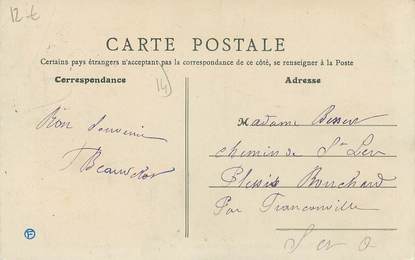 12 -€
CARTE POSTALE
Certains pays étrangers n'acceptant pas la correspondance de ce côté, se renseigner à la Poste
Correspondance
14
Adresse
Bon Souvenir
Madame
chemin de St Leu
Plessis Bouchard
Par Franconville
S et O